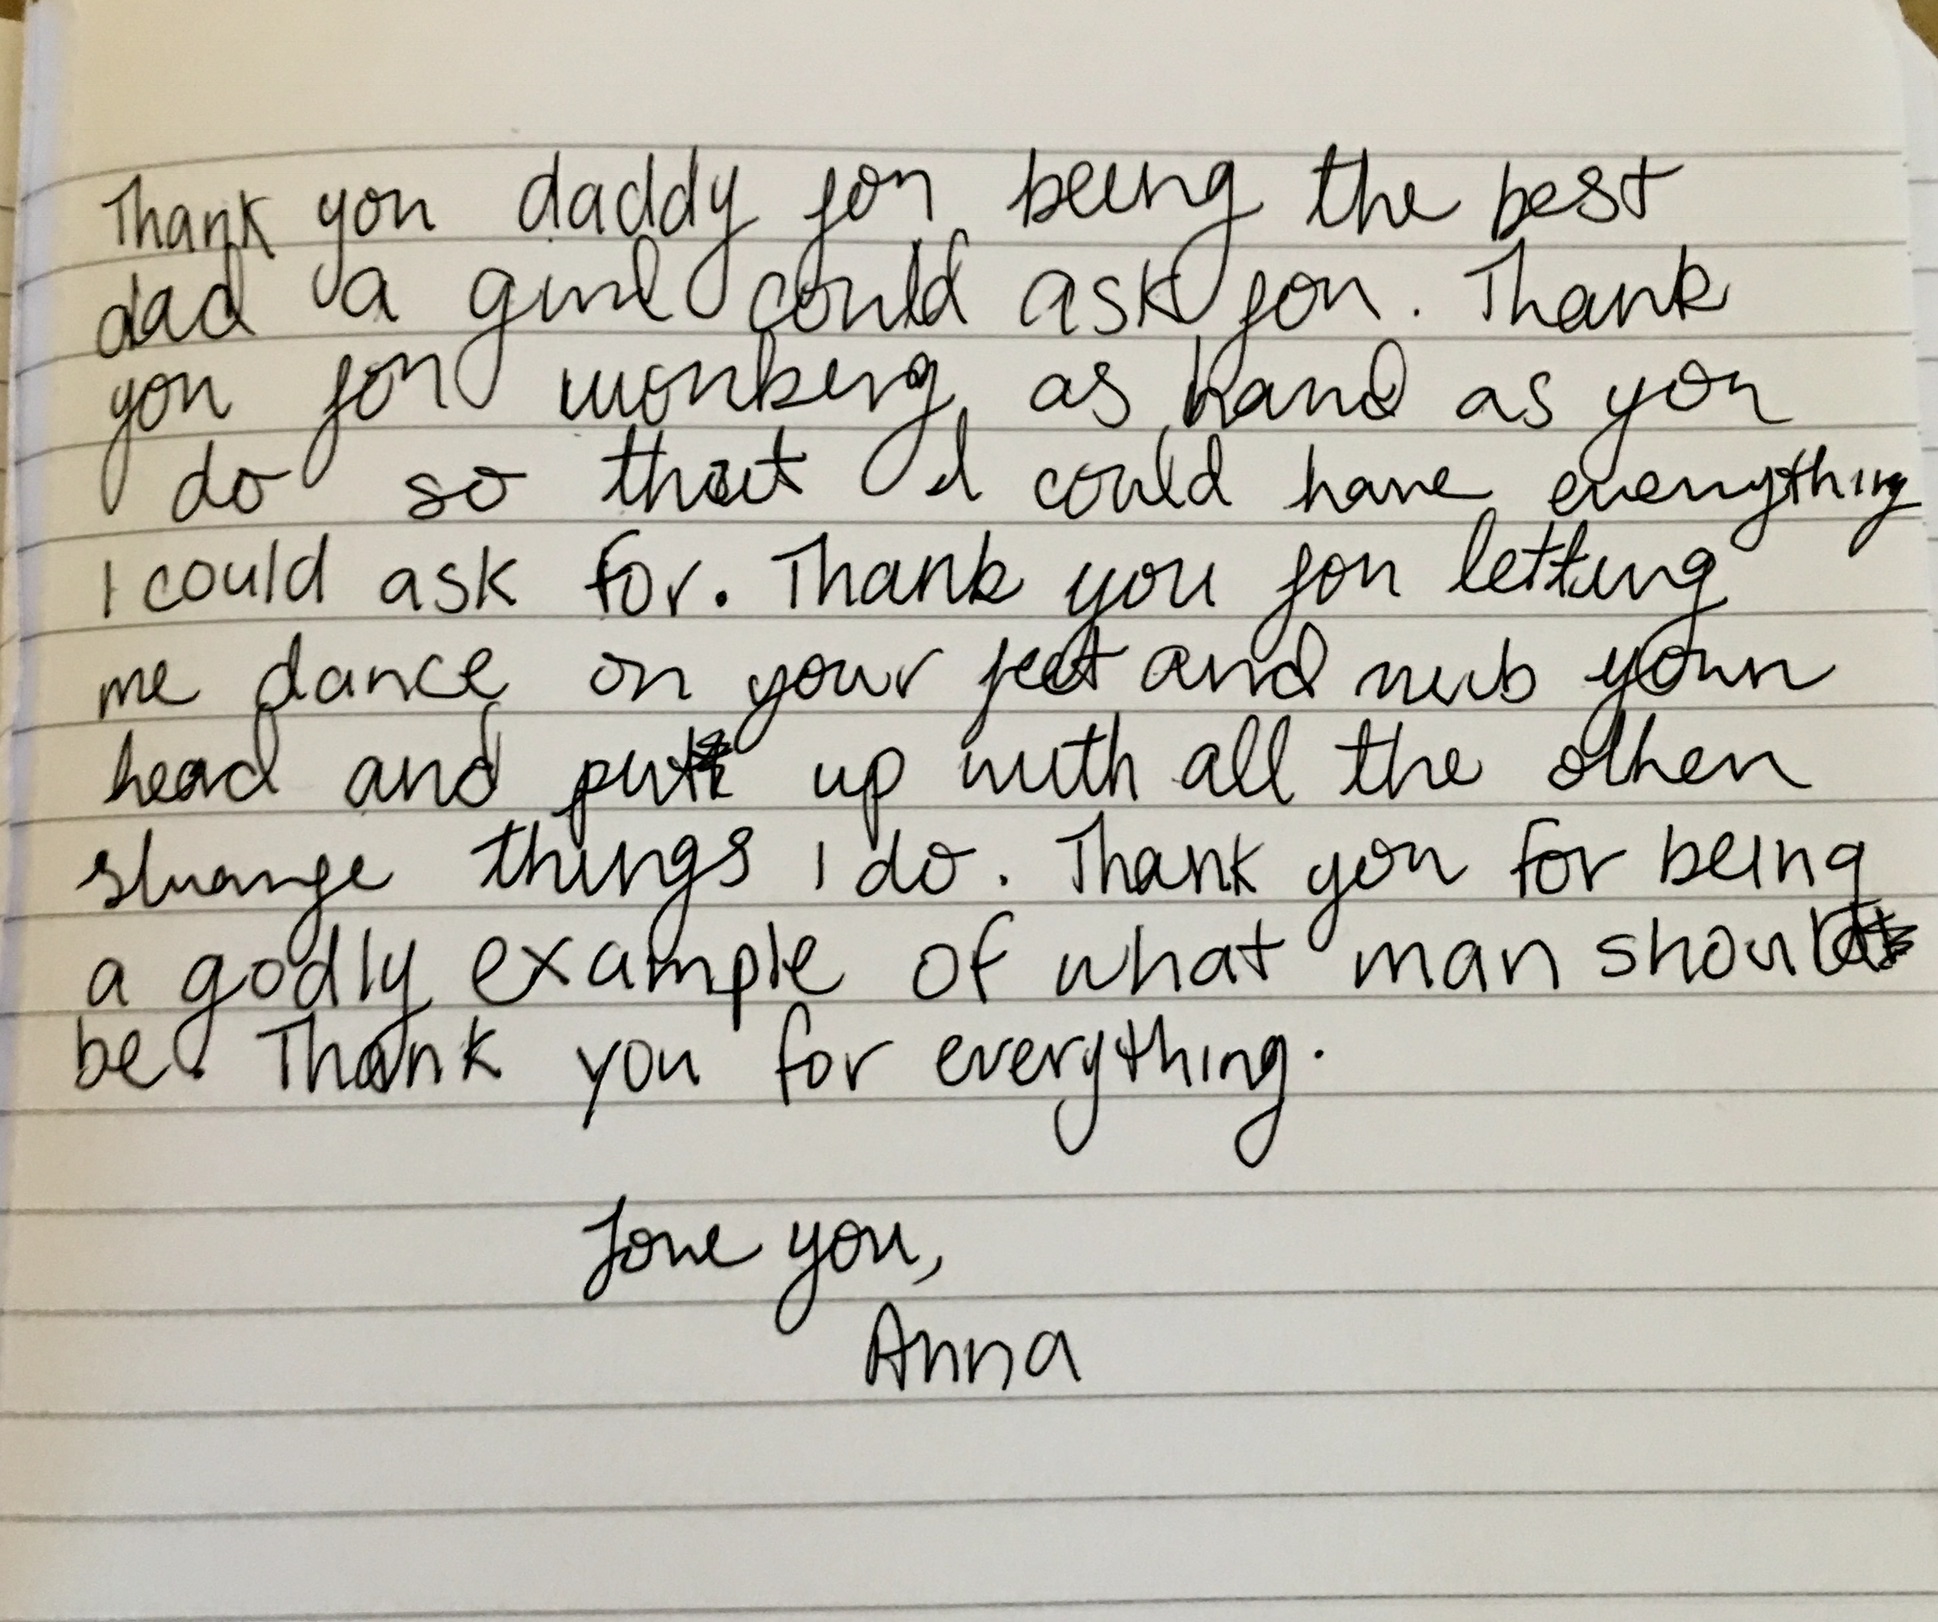 Thank you daddy for being the best
dad a girl could ask for. Thank
you for working as hard as you
do so that I could have everything
I could ask for. Thank you for letting
me dance on your feet and rub your
head and put up with all the other
strange things I do. Thank you for being
a godly example of what man should
be. Thank you for everything.
Love you,
Anna